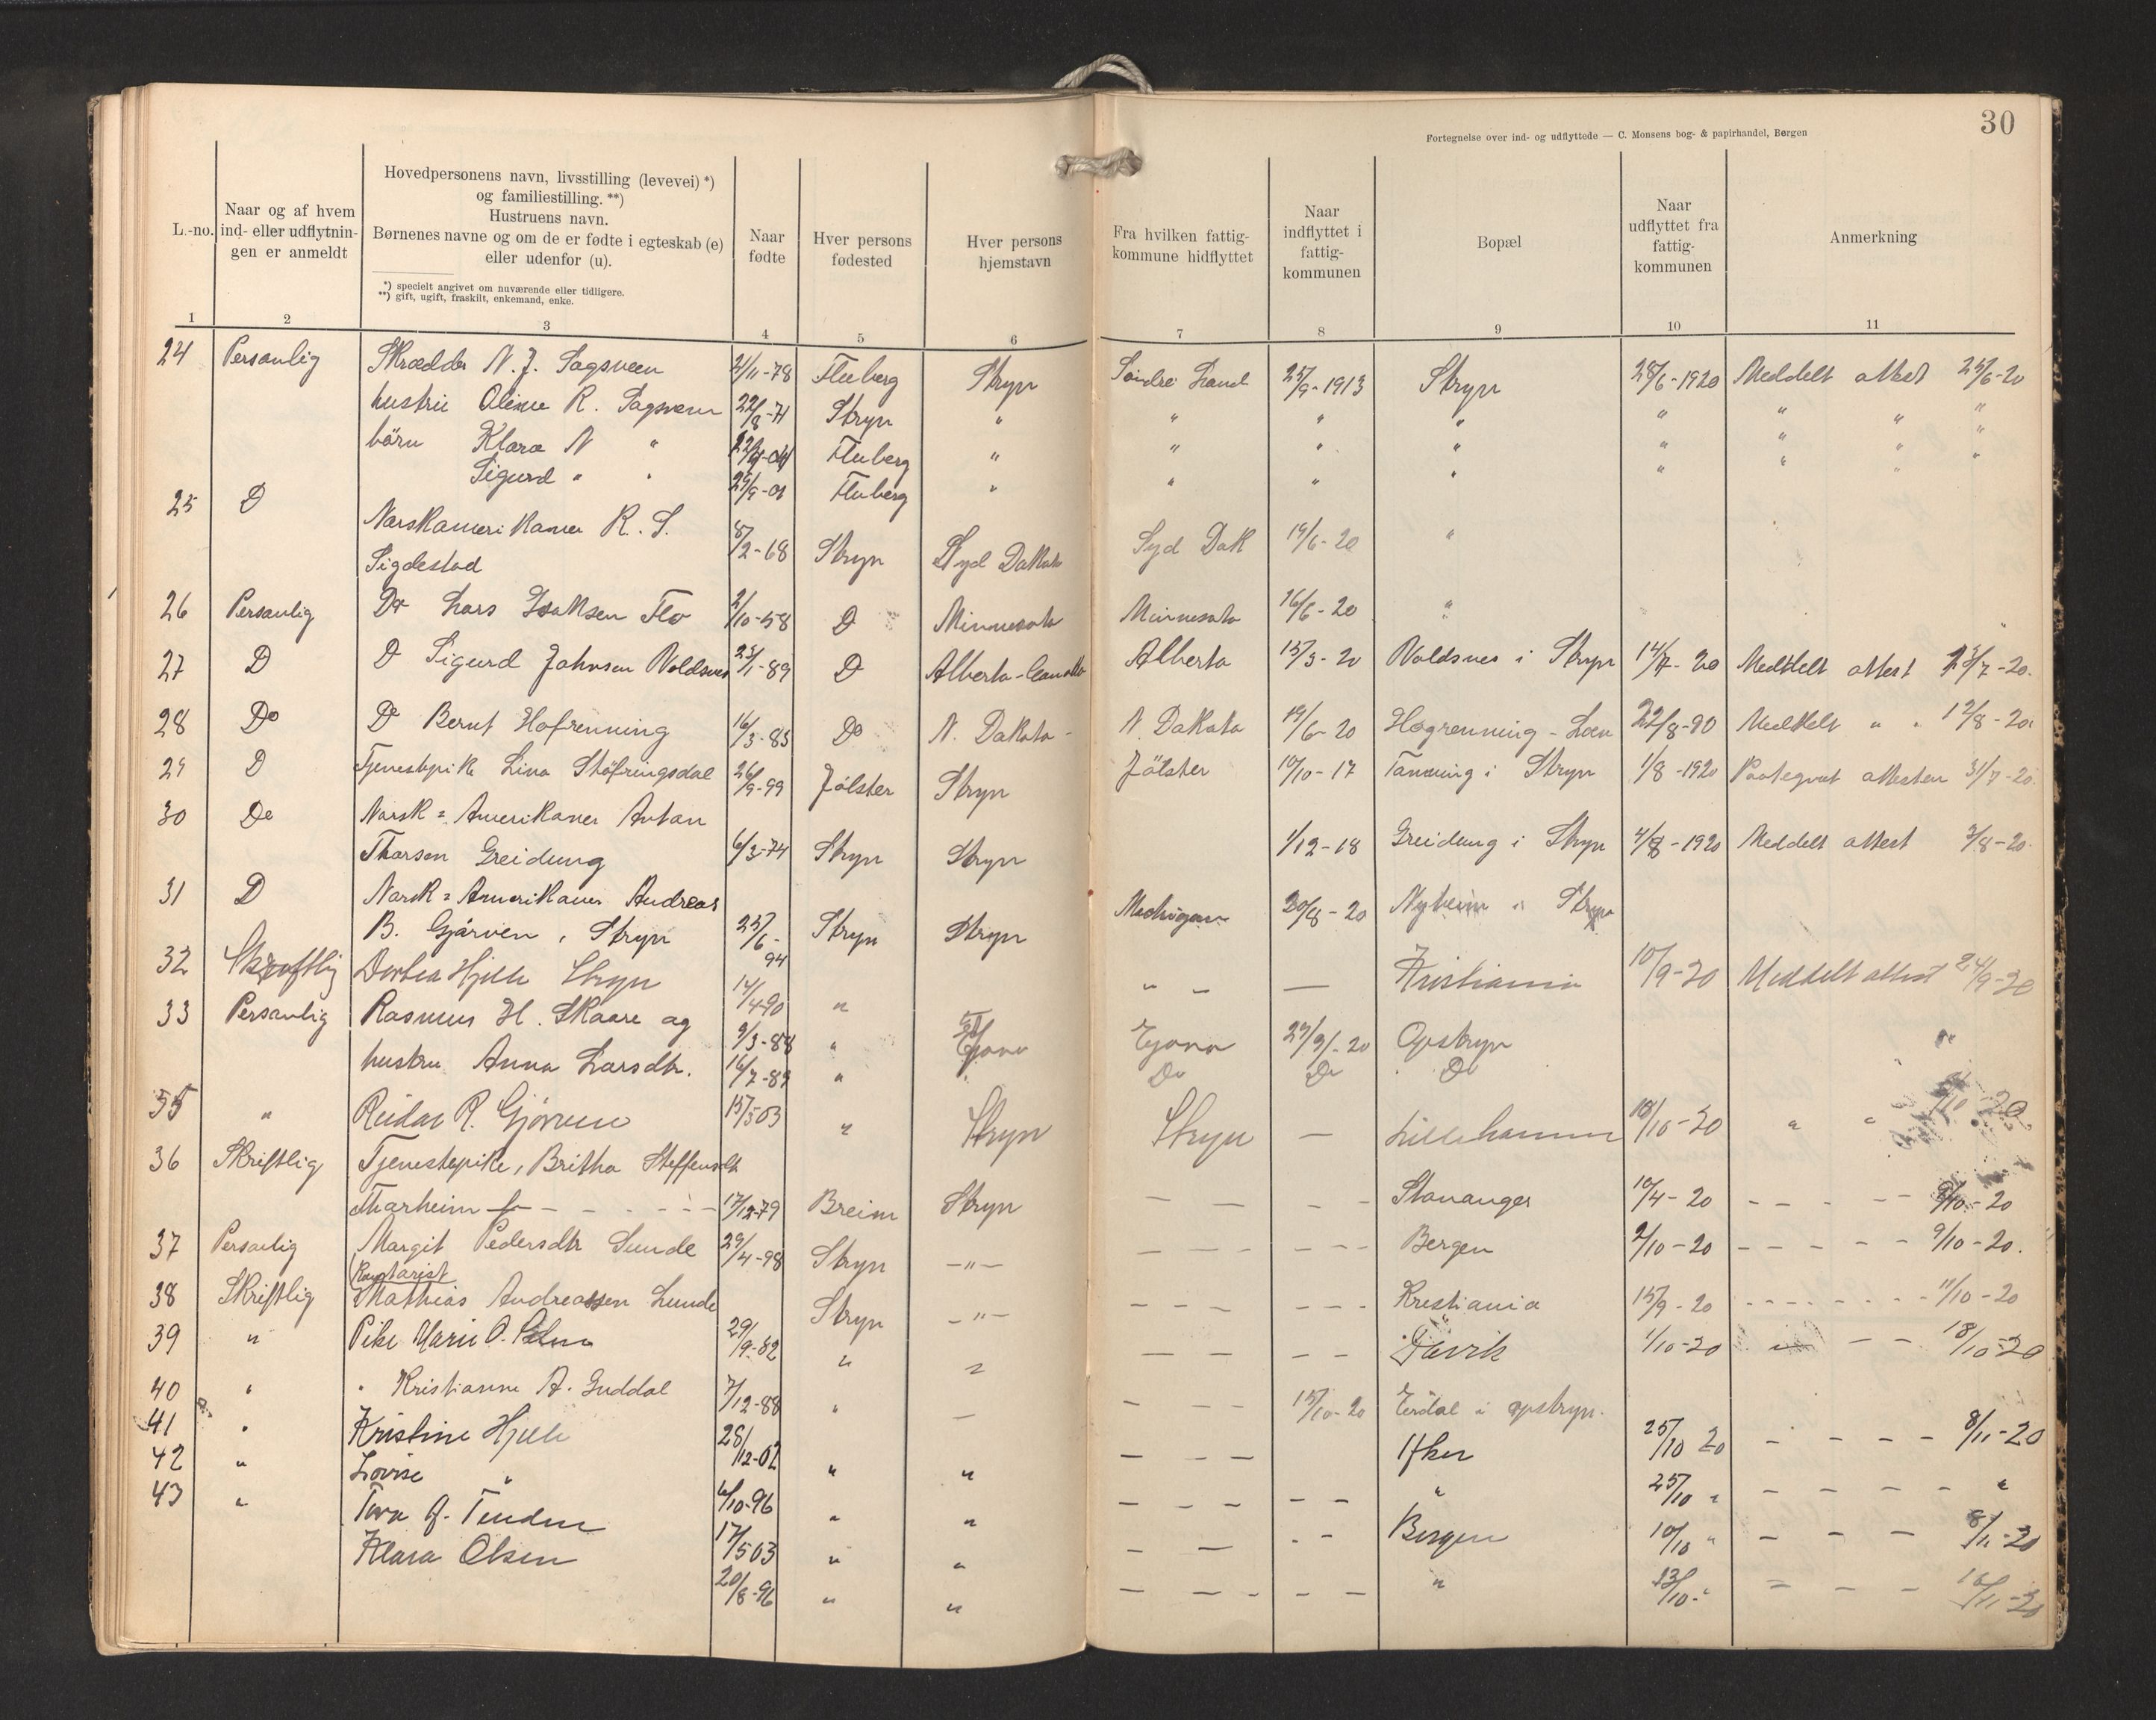 30
Fortegnelse over ind- og udflyttede — C. Monsens bog- & papirhandel, Bergen
L.-no.
Naar og af hvem ind- eller udflytnin- gen er anmeldt
Hovedpersonens navn, livsstilling (levevei) *)
og familiestilling. **)
Hustruens navn.
Børnenes navne og om de er fødte i egteskab (e)
eller udenfor (u).
*) specielt angivet om nuværende eller tidligere.
**) gift, ugift, fraskilt, enkemand, enke.
Naar fødte
Hver persons fødested
Hver persons hjemstavn
Fra hvilken fattig- kommune hidflyttet
Naar indflyttet i fattig- kommunen
Bopæl
Naar udflyttet fra fattig- kommunen
Anmerkning
1 2 3 4 5 6 7 8 9 10 11
24 Personlig Skrædder N. J. Sagsveen 2/11-78 Fluberg Stryn Søndre Land 25/9-1913 Stryn 28/6-1920 Meddelt attest 25/6-20
hustru Oline R. Sagsveen 22/8-71 Stryn " " " " " " " "
børn Klara N " Fluberg " " " " " " " "
Sigurd " " 25/9-01 Fluberg " " " " " " " "
25 D Norskamerikaner R. S.
Sigdestad 8/2-68 Stryn Syd Dakota Syd Dak 19/6-20 "
26 Personlig Do Lars Isaksen Flo 2/10-58 D Minnesota Minnesota 16/6-20 "
27 D D Sigurd Johnsen Voldsnes 23/1-89 D Alberta-Canada Alberta 15/3-20 Voldsnes i Stryn 14/7-20 Meddelt attest 13/7-20.
28 Do D Bernt Hofrenning 16/3-83 Do N. Dakota - N. Dakota 19/6-20 Hogrenning - Loen 22/8-90 Meddelt " " 12/8-20.
29 D Tjenestepike Lina Støfringsdal 26/9-99 Jölster Stryn Jölster 10/10-17 Tonning i Stryn 1/8-1920 Paategnet attesten 31/7-20.
30 Do Norsk = Amerikaner Anton
Thorsen Greidung 6/3-74 Stryn Stryn 1/12-18 Greidung i Stryn 4/8-1920 Meddelt attest 3/8-20.
31 D Norsk = Amerikaner Andreas
B. Gjørven, Stryn 25/6-94 Stryn Stryn Michigan 20/8-20 Nyheim i Stryn
32 Skriftlig Dortea Hjelle Stryn 14/4-90 " " - — Kristiania 10/9-20 Meddelt attest 24/9-20
33 Personlig Rasmus H. Skaare og 9/3-88 " Egova 29/9-20 Opstryn "
hustru Anna Larsdtr. 16/7-89 " " Do Do Do
35 " Reidar R. Gjørven 15/5 03 " Stryn Stryn — Lillehammer 10/10-20 " "
36 Skriftlig Tjenestepike, Britha Steffensdt
Tharheim 17/12-79 Breim Stryn — — - - Stavanger 10/4-20 - - - - - 9/10-20
37 Personlig Margit Pedersdtr Sunde 29/4-98 Stryn -"- - - - - - - Bergen 2/10-20 - - - - - 9/10-20.
(Kontorist
38 Skriftlig Mathias Andreassen Lunde Stryn -"- - - - - - - Kristiania 15/9-20 - - - - - 11/10-20
39 " Pike Marie O. 29/9-82 " " - - - - - Davik 1/10-20 - - 18/10-20
40 " " Kristianne A. Guddal 7/12-88 " - - - - 15/10-20 Eirdal i opstryn.
41 " Kristine Hjelle 28/12-02 " " - - - Ytker 25/10 20 - - - - 8/11-20
42 " Lovise " 6/10-96 " " - - - - - " 25/10 " - - - - - "
43 " Tora O. Tenden 17/5 03 " " - - - - Bergen 10/10 " - - - 8/11-20
Klara Olsen 20/8-96 " " - - - - - " 13/10- " - - - 16/11-20